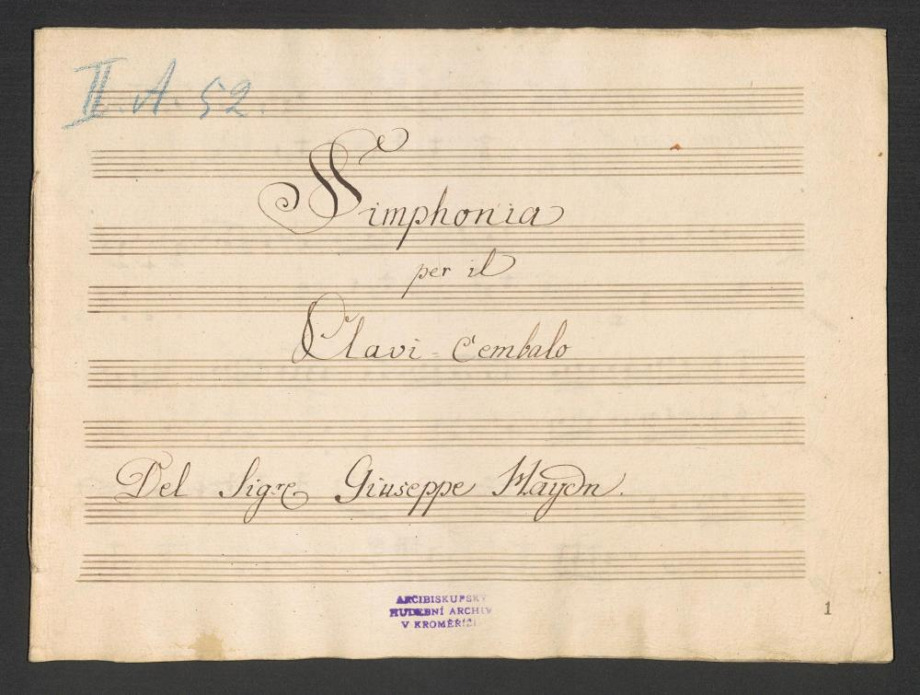 II. A. 52.
Simphonia
per il
Clavi-Cembalo
Del Sigre Giuseppe Haydn.
ARCIBISKUPSKÝ
HUDEBNÍ ARCHIV
V KROMĚŘÍŽI
1